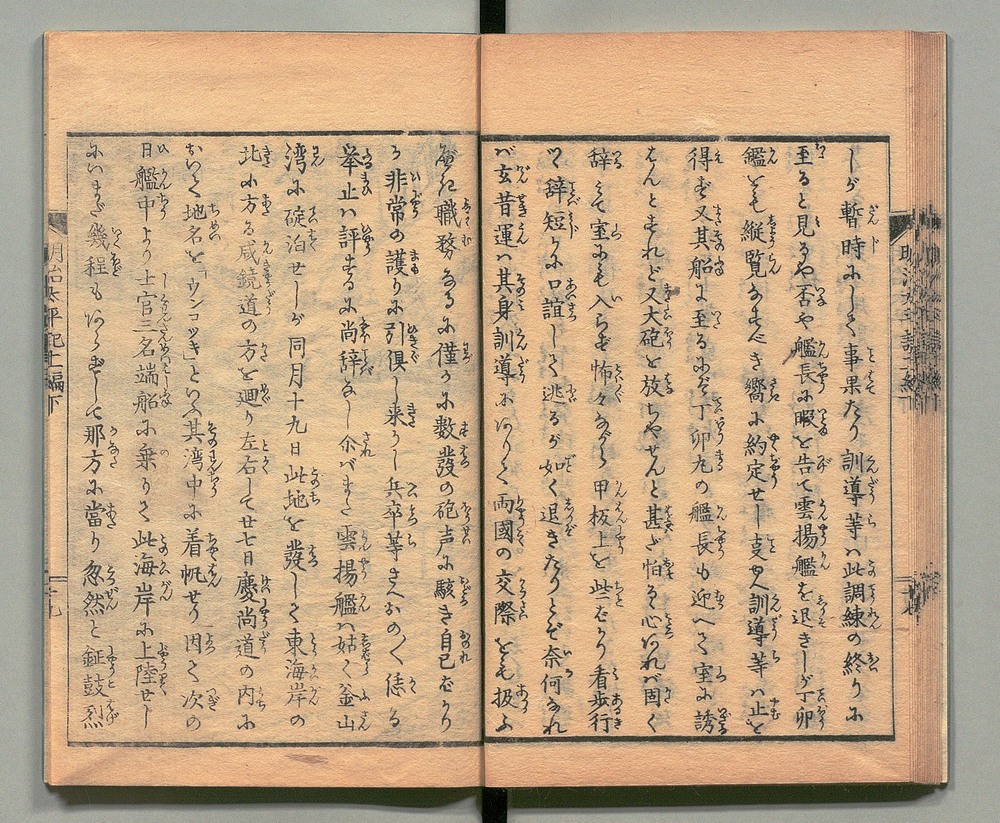 しが暫時にして事果たり訓導等ハ此調練の終りに
至ると見るや否や艦長に暇を告て雲揚艦を退きしが丁卯
艦をも縦覧なすべき嚮に約定せし故訓導等ハ止を
得ず又其船に至るにぞ丁卯丸の艦長も迎へて室に誘
はんとすれど又大砲を放ちやせんと甚だ怕るゝ心あれバ固く
辞して室にも入らず怖々ながら甲板上を些ばかり看歩行
つゝ辞短に口誼して逃るが如く退きたりとぞ奈何なれ
バ玄昔運ハ其身訓導にありて両國の交際をも扱ふ
べき職務なるに僅かに数發の砲声に駭き自己ばかり
か非常の護りに引倶し来りし兵卒等さへおのゝく恁る
挙止ハ評するに尚辞なし尒バまた雲揚艦ハ姑く釜山
湾に碇泊せしが同月十九日此地を發して東海岸の
北に方る咸鏡道の方を廻り左右して廿七日慶尚道の内に
おいて地名を「ウンコツき」といふ其湾中に着帆せり因て次の
日艦中より士官三名端船に乗りて此海岸に上陸せし
にいまだ幾程もあらずして那方に當り忽然と鉦鼓烈
明治太平記上編下